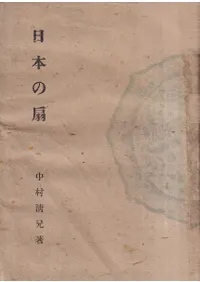 日本の扇
中村清兄著